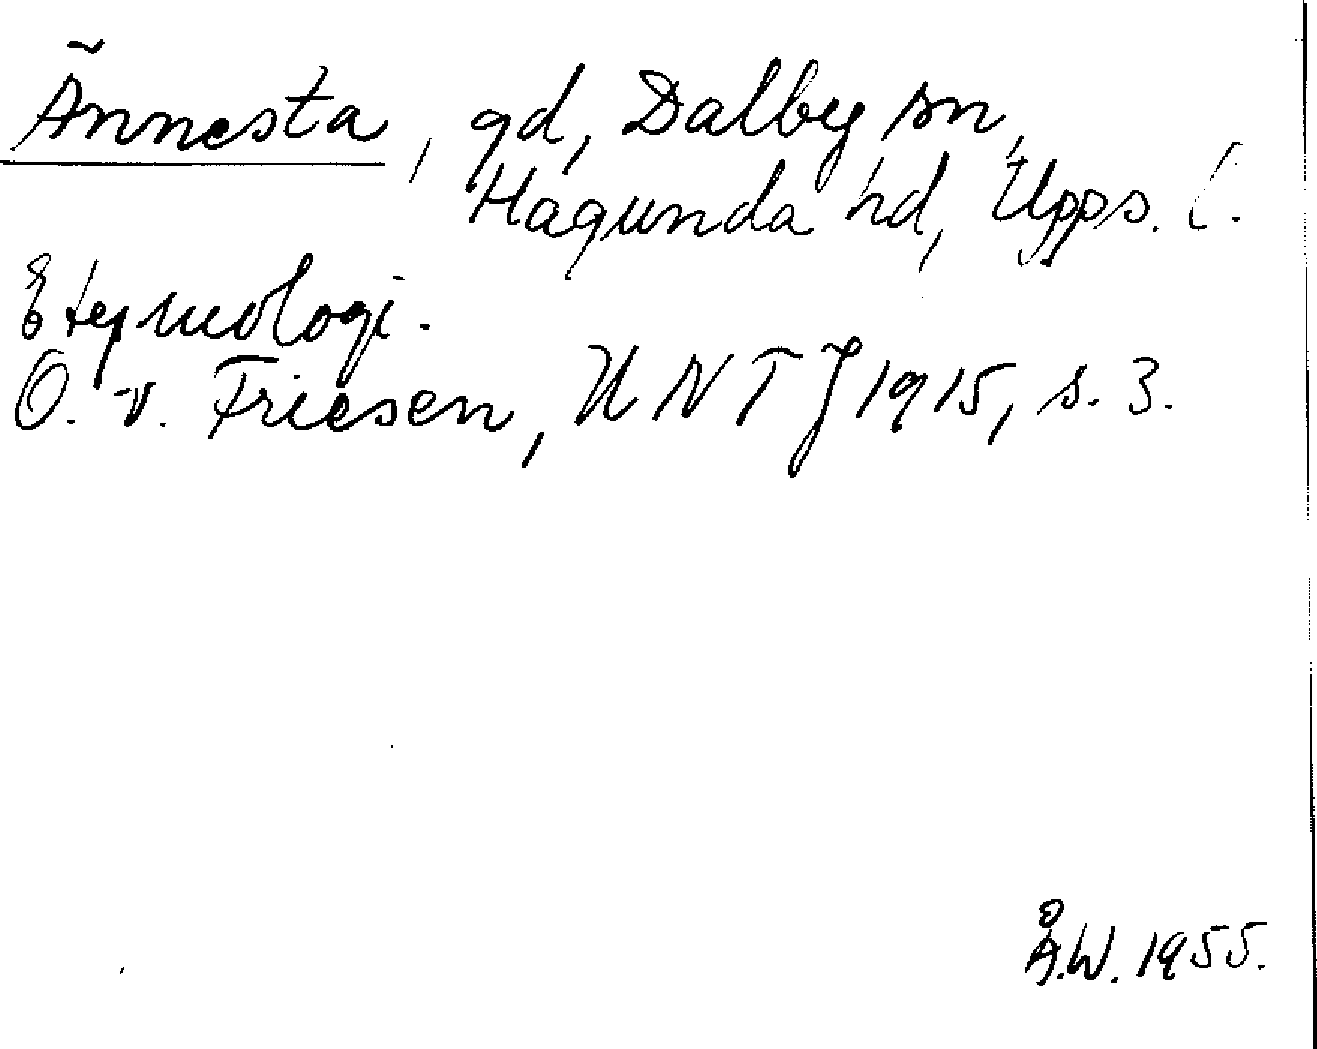 Ännesta, gd, Dalby sn,
Hagunda hd, Upps. l.
Etymologi.
O. v. Friesen, UNTJ 1915, s. 3.
Å.W. 1955.